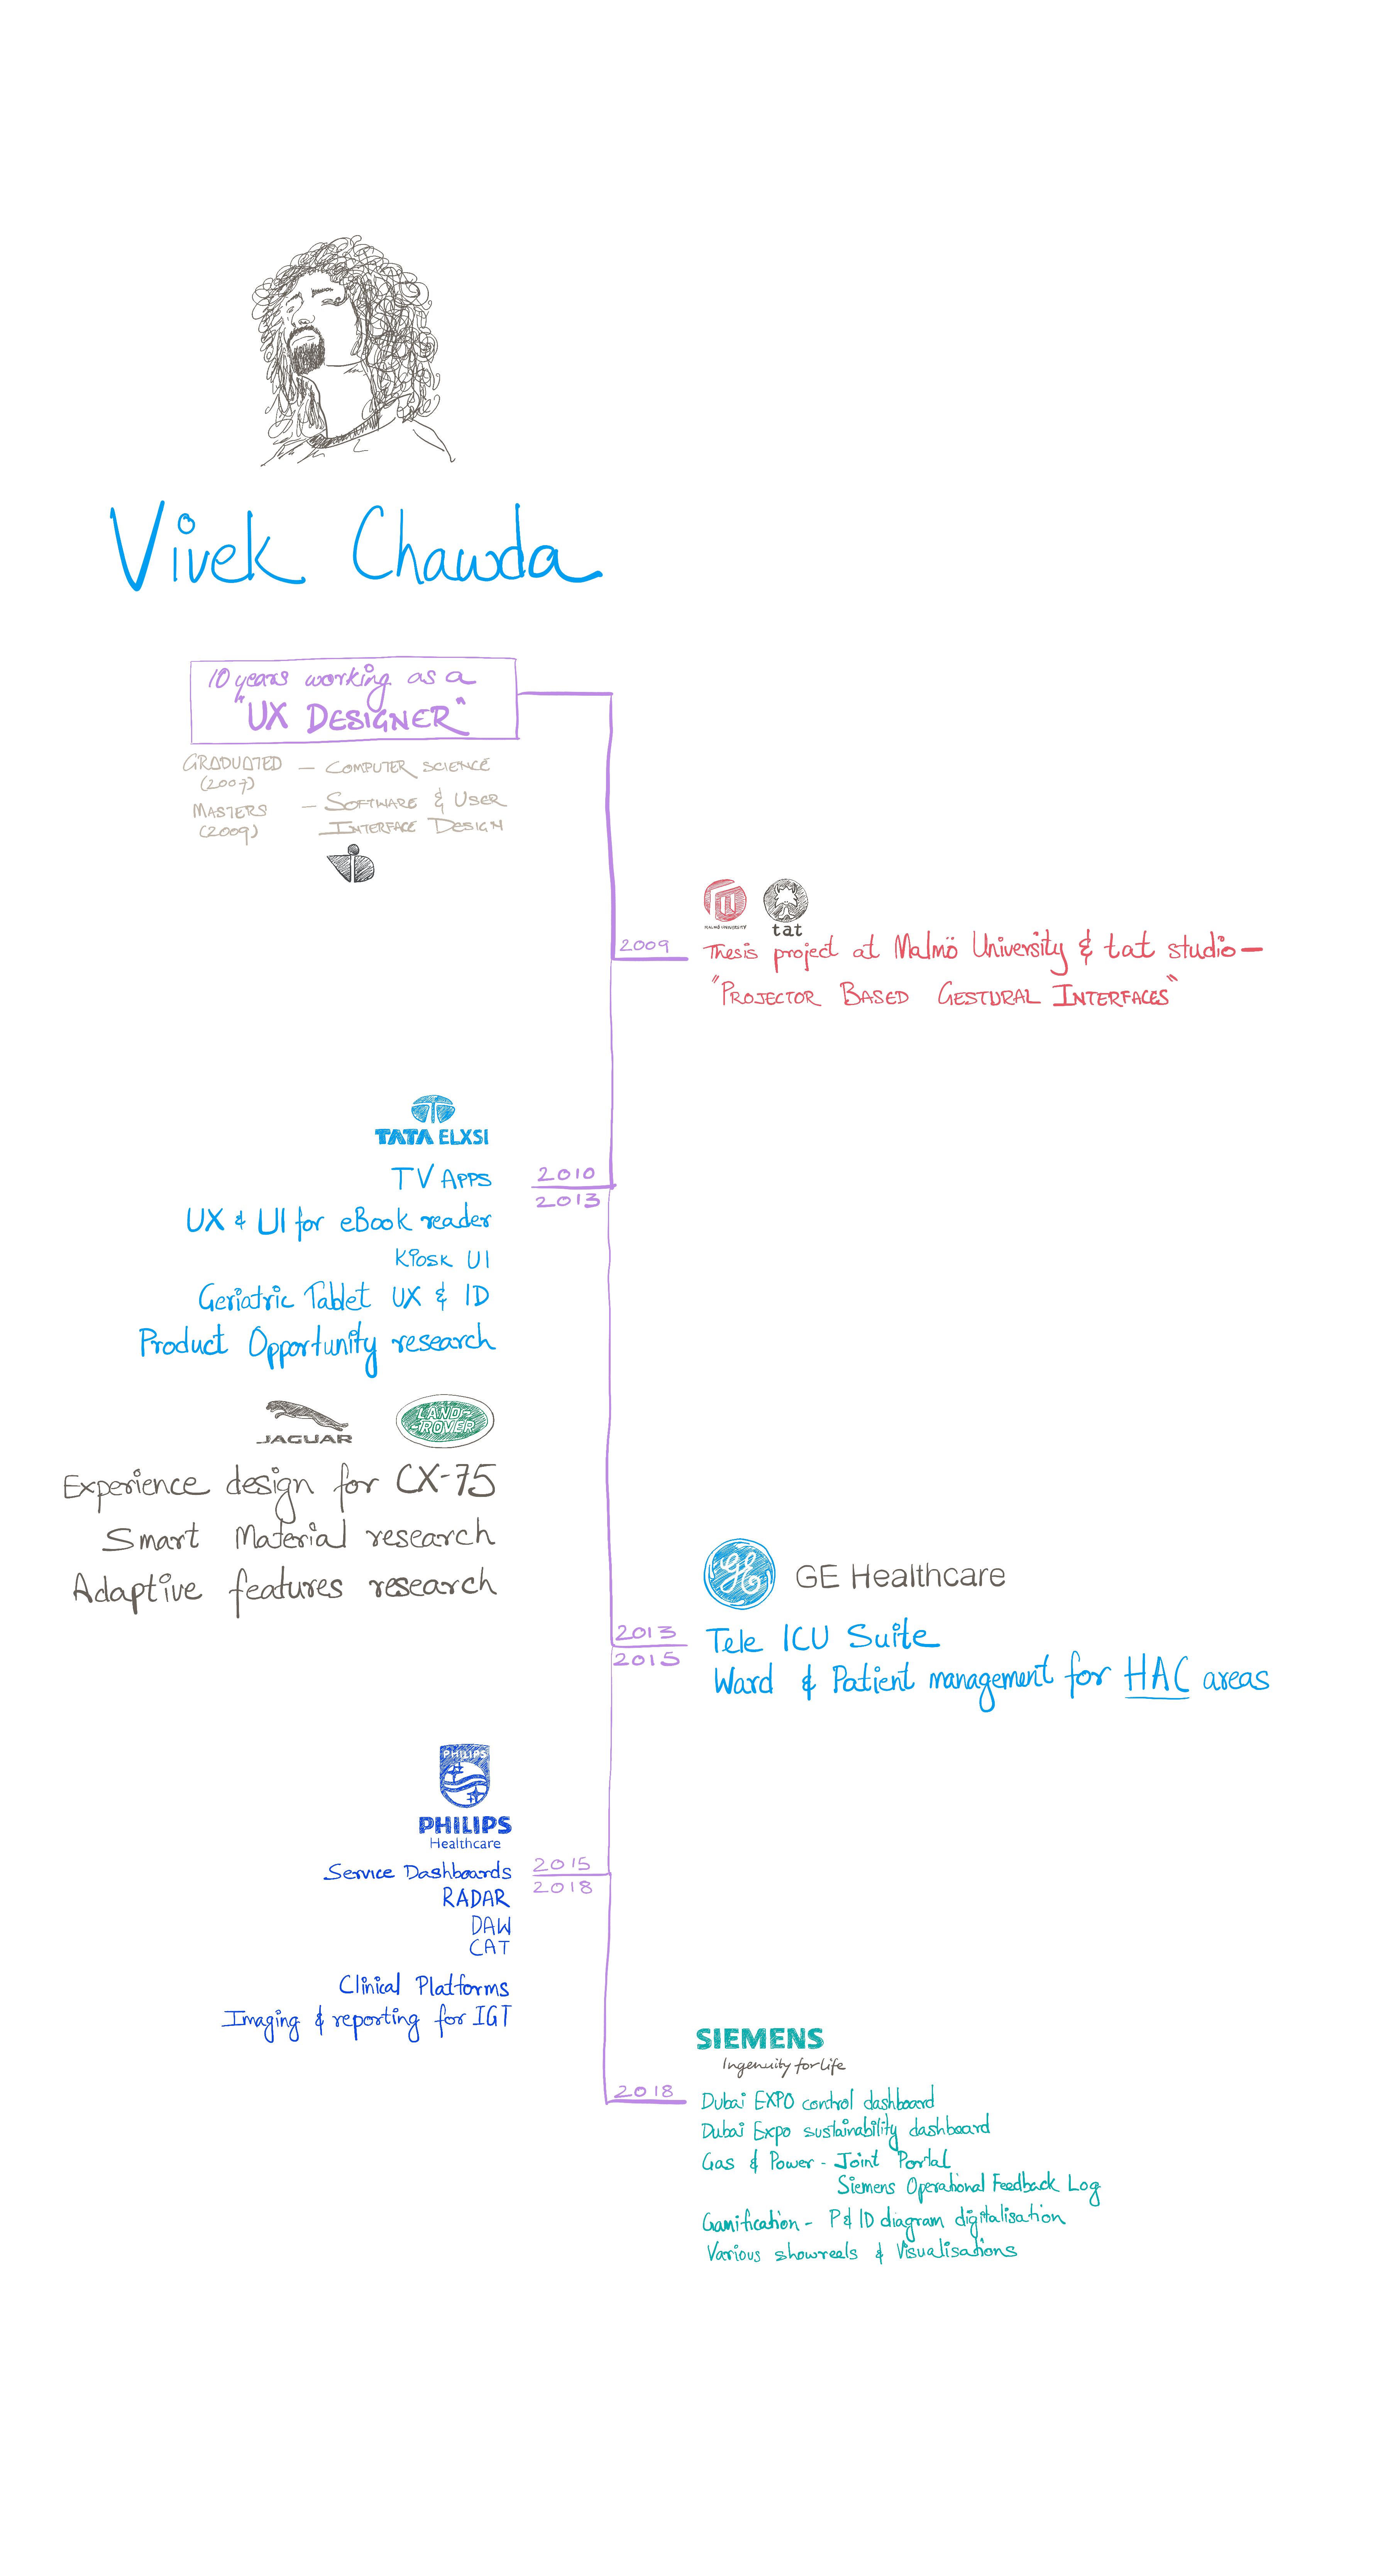 Vivek Chawda
10 years working as a
"UX DESIGNER"
GRADUATED — COMPUTER SCIENCE
(2007)
MASTERS — SOFTWARE & USER
(2009) INTERFACE DESIGN
MALMÖ UNIVERSITY
tat
2009
Thesis project at Malmö University & tat studio —
"PROJECTOR BASED GESTURAL INTERFACES"
TATA ELXSI
2010
2013
TV APPS
UX & UI for eBook reader
Kiosk UI
Geriatric Tablet UX & ID
Product Opportunity research
JAGUAR
LAND-
-ROVER
Experience design for CX-75
Smart Material research
Adaptive features research
GE
GE Healthcare
2013
2015
Tele ICU Suite
Ward & Patient management for HAC areas
PHILIPS
PHILIPS
Healthcare
2015
2018
Service Dashboards
RADAR
DAW
CAT
Clinical Platforms
Imaging & reporting for IGT
SIEMENS
Ingenuity for life
2018
Dubai EXPO control dashboard
Dubai Expo sustainability dashboard
Gas & Power - Joint Portal
Siemens Operational Feedback Log
Gamification - P&ID diagram digitalisation
Various showreels & Visualisations